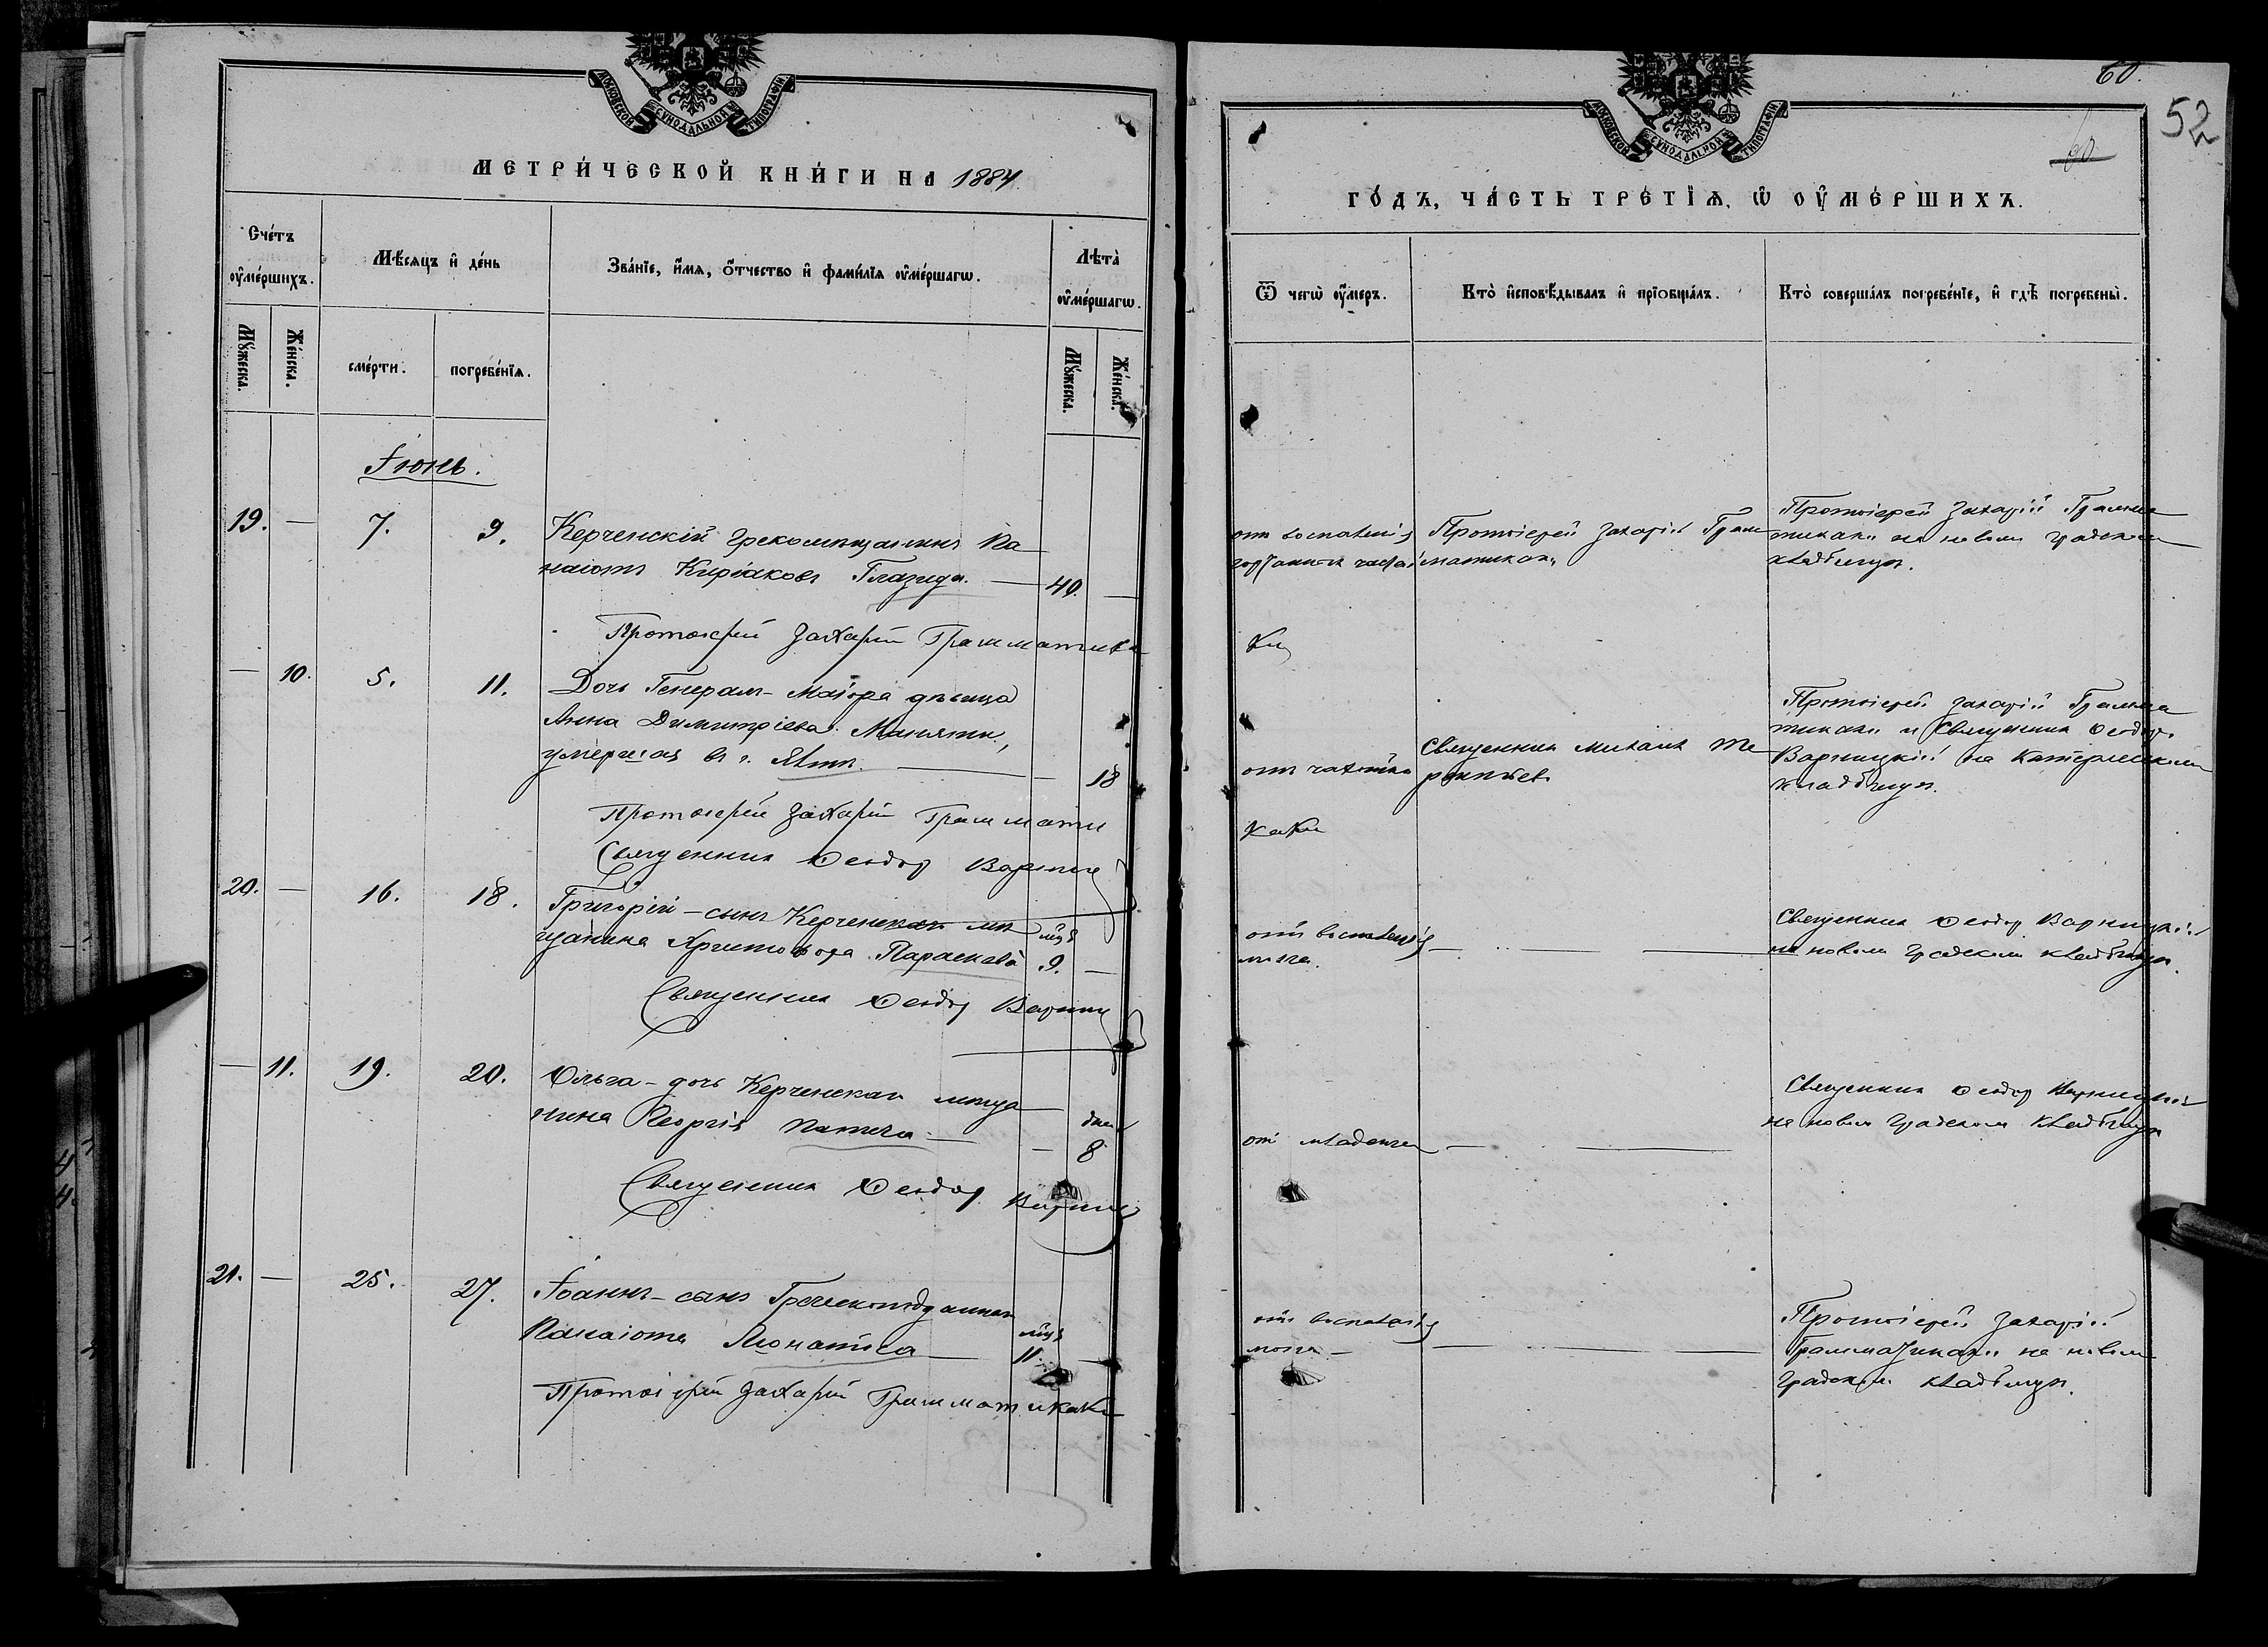 МОСКОВСКОЙ СѴНОДАЛЬНОЙ ТИПОГРАФІИ
МЕТРИ́ЧЕСКОЙ КНИ́ГИ НА 1884
Сче́тъ оу҆ме́ршихъ.
Мѣ́сяцъ и҆ де́нь
Зва́нїе, и҆́мѧ, о҆́тчество и҆ фами́лїѧ оу҆ме́ршагѡ.
Лѣ́та оу҆ме́ршагѡ.
Мꙋ́жеска.
Же́нска.
сме́рти.
погребе́нїѧ.
Мꙋ́жеска.
Же́нска.
Іюнь.
19. — 7. 9. Керченскій грекомѣщанинъ Па
наіотъ Киріаковъ Глазиди. — 40. —
Протоіерей Захарій Грамматика
— 10. 5. 11. Дочь Генералъ-Маіора дѣвица
Анна Димитріева Маняти,
умершая въ г. Ялтѣ. — — 18
Протоіерей Захарій Граммати
Священникъ Ѳеодоръ Варниц
20. — 16. 18. Григорій – сынъ Керченскаго мѣ
щанина Христофора Параскева мцв 9. —
Священникъ Ѳеодоръ Варниц
— 11. 19. 20. Ольга – дочь Керченскаго мѣща
нина Георгія — — дней 8
Священникъ Ѳеодоръ Варниц
21. — 25. 27. Іоаннъ – сынъ Греческоподданнаго
Панаіота — мцв 11. —
Протоіерей Захарій Грамматикаки
60.
52
60
МОСКОВСКОЙ СѴНОДАЛЬНОЙ ТИПОГРАФІИ
ГО́ДЪ, ЧА́СТЬ ТРЕ́ТЇѦ, Ѡ҆ ОУ҆МЕ́РШИХЪ.
Ѿ чегѡ̀ оу҆́меръ.
Кто̀ и҆сповѣ́дывалъ и҆ прїобща́лъ.
Кто̀ соверша́лъ погребе́нїе, и҆ гдѣ̀ погребены̀.
отъ воспаленія
Протоіерей Захарій Грам
матикаки
Протоіерей Захарій Грамма
тикаки на новомъ градскомъ
кладбищѣ.
ки
отъ чахотки
Священникъ Михаилъ Те
рентьевъ
Протоіерей Захарій Грамма
тикаки и Священникъ Ѳеодоръ
Варницкій на Катерлезскомъ
кладбищѣ.
каки
отъ воспаленія
мозга. —
Священникъ Ѳеодоръ Варницкій
на новомъ градскомъ кладбищѣ.
отъ младенч —
Священникъ Ѳеодоръ Варницкій
на новомъ градскомъ кладбищѣ
отъ воспаленія
мозга —
Протоіерей Захарій
Грамматикаки на новомъ
градскомъ кладбищѣ.